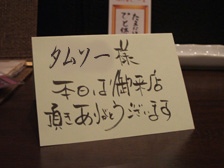 タムソー様
本日は御来店
頂きありがとうございます